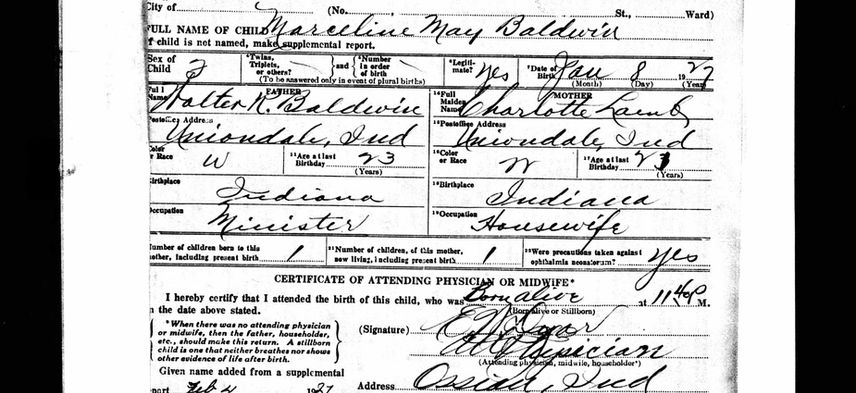 City of (No. , St., Ward)
FULL NAME OF CHILD Marceline May Baldwin
If child is not named, make supplemental report.
Sex of Child F ⁴Twins, Triplets, or others? and ⁵Number in order of birth ⁶Legiti-mate? Yes ⁷Date of Birth Jan 8 1927
(To be answered only in event of plural births) (Month) (Day) (Year)
FATHER MOTHER
Full Name Walter N. Baldwin ¹⁴Full Maiden Name Charlotte Lamb
Postoffice Address ¹⁵Postoffice Address
Uniondale, Ind Uniondale, Ind
Color or Race W ¹¹Age at last Birthday 23 (Years) ¹⁶Color or Race W ¹⁷Age at last Birthday 23 (Years)
Birthplace Indiana ¹⁸Birthplace Indiana
Occupation Minister ¹⁹Occupation Housewife
Number of children born to this mother, including present birth 1 ²¹Number of children, of this mother, now living, including present birth 1 ²²Were precautions taken against ophthalmia neonatorum? yes
CERTIFICATE OF ATTENDING PHYSICIAN OR MIDWIFE*
I hereby certify that I attended the birth of this child, who was Born alive at 11 40 P M.
on the date above stated. (Born alive or Stillborn)
*When there was no attending physician
or midwife, then the father, householder,
etc., should make this return. A stillborn
child is one that neither breathes nor shows
other evidence of life after birth.
(Signature)
Physician
(Attending physician, midwife, householder*)
Given name added from a supplemental
report Feb 2 1927 Address Ossian, Ind